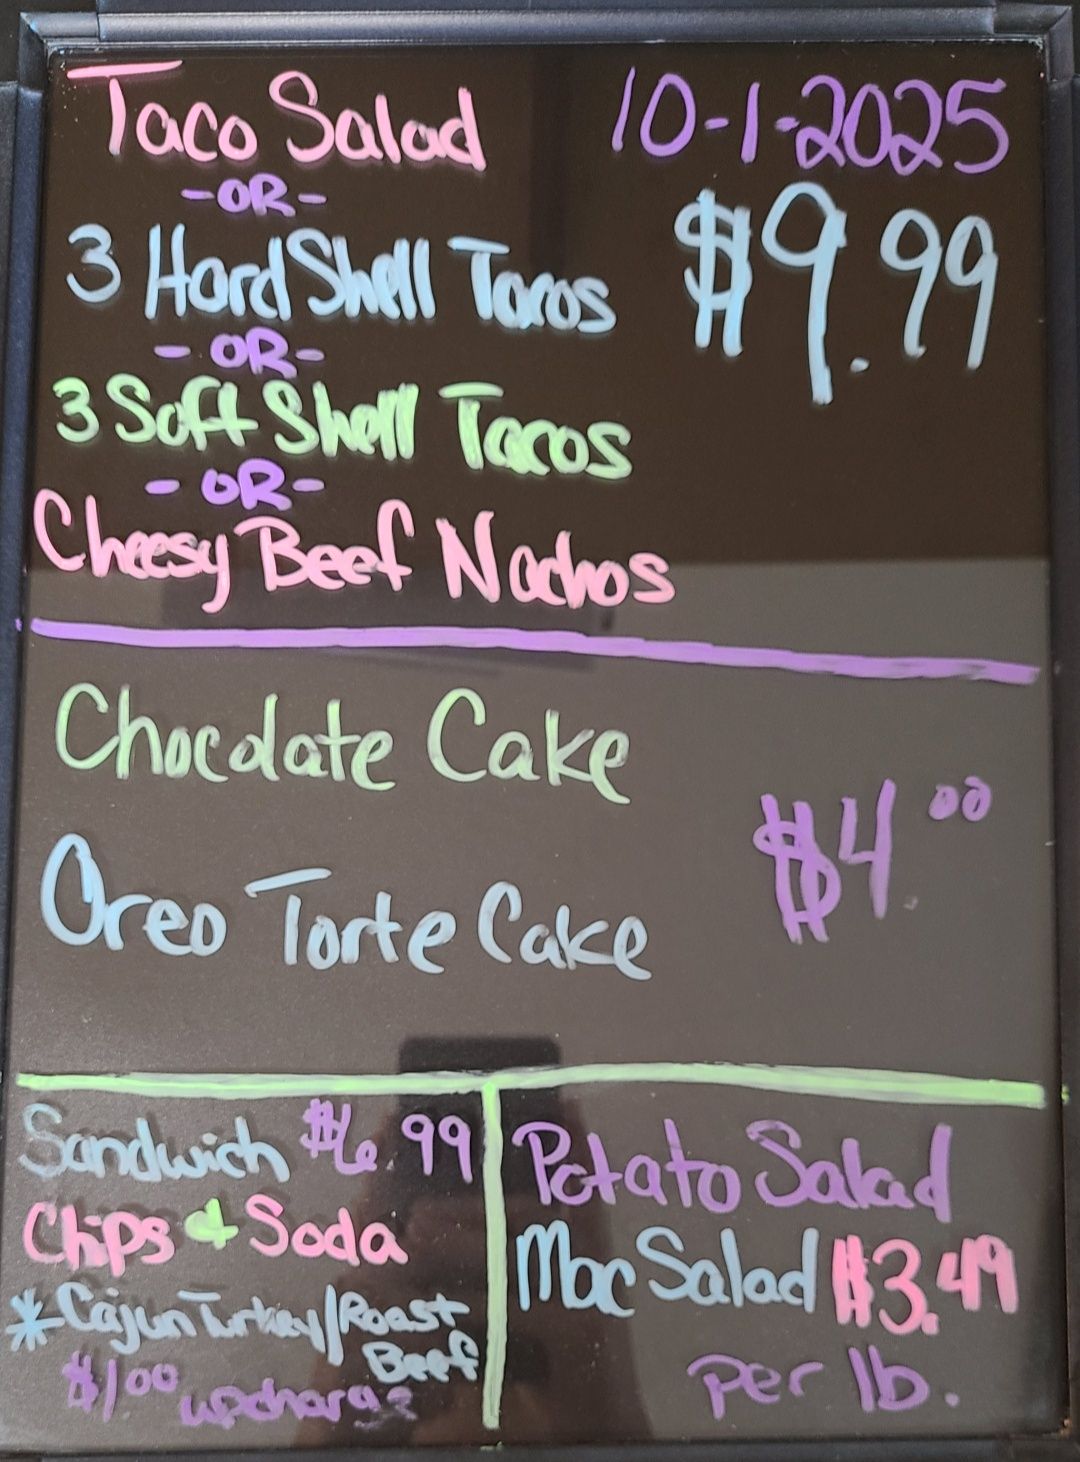 Taco Salad 10-1-2025
-OR-
3 Hard Shell Tacos $9.99
-OR-
3 Soft Shell Tacos
-OR-
Cheesy Beef Nachos
Chocolate Cake
$4.00
Oreo Torte Cake
Sandwich $6.99
Chips & Soda
* Cajun Turkey/Roast
Beef
$1.00 upcharge
Potato Salad
Mac Salad $3.49
per lb.